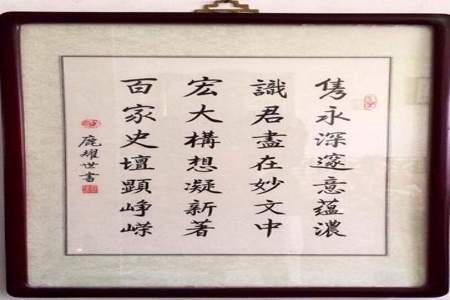 雋永深邃意蘊濃
識君盡在妙文中
宏大構想凝新著
百家史壇顯崢嶸
龐耀世書